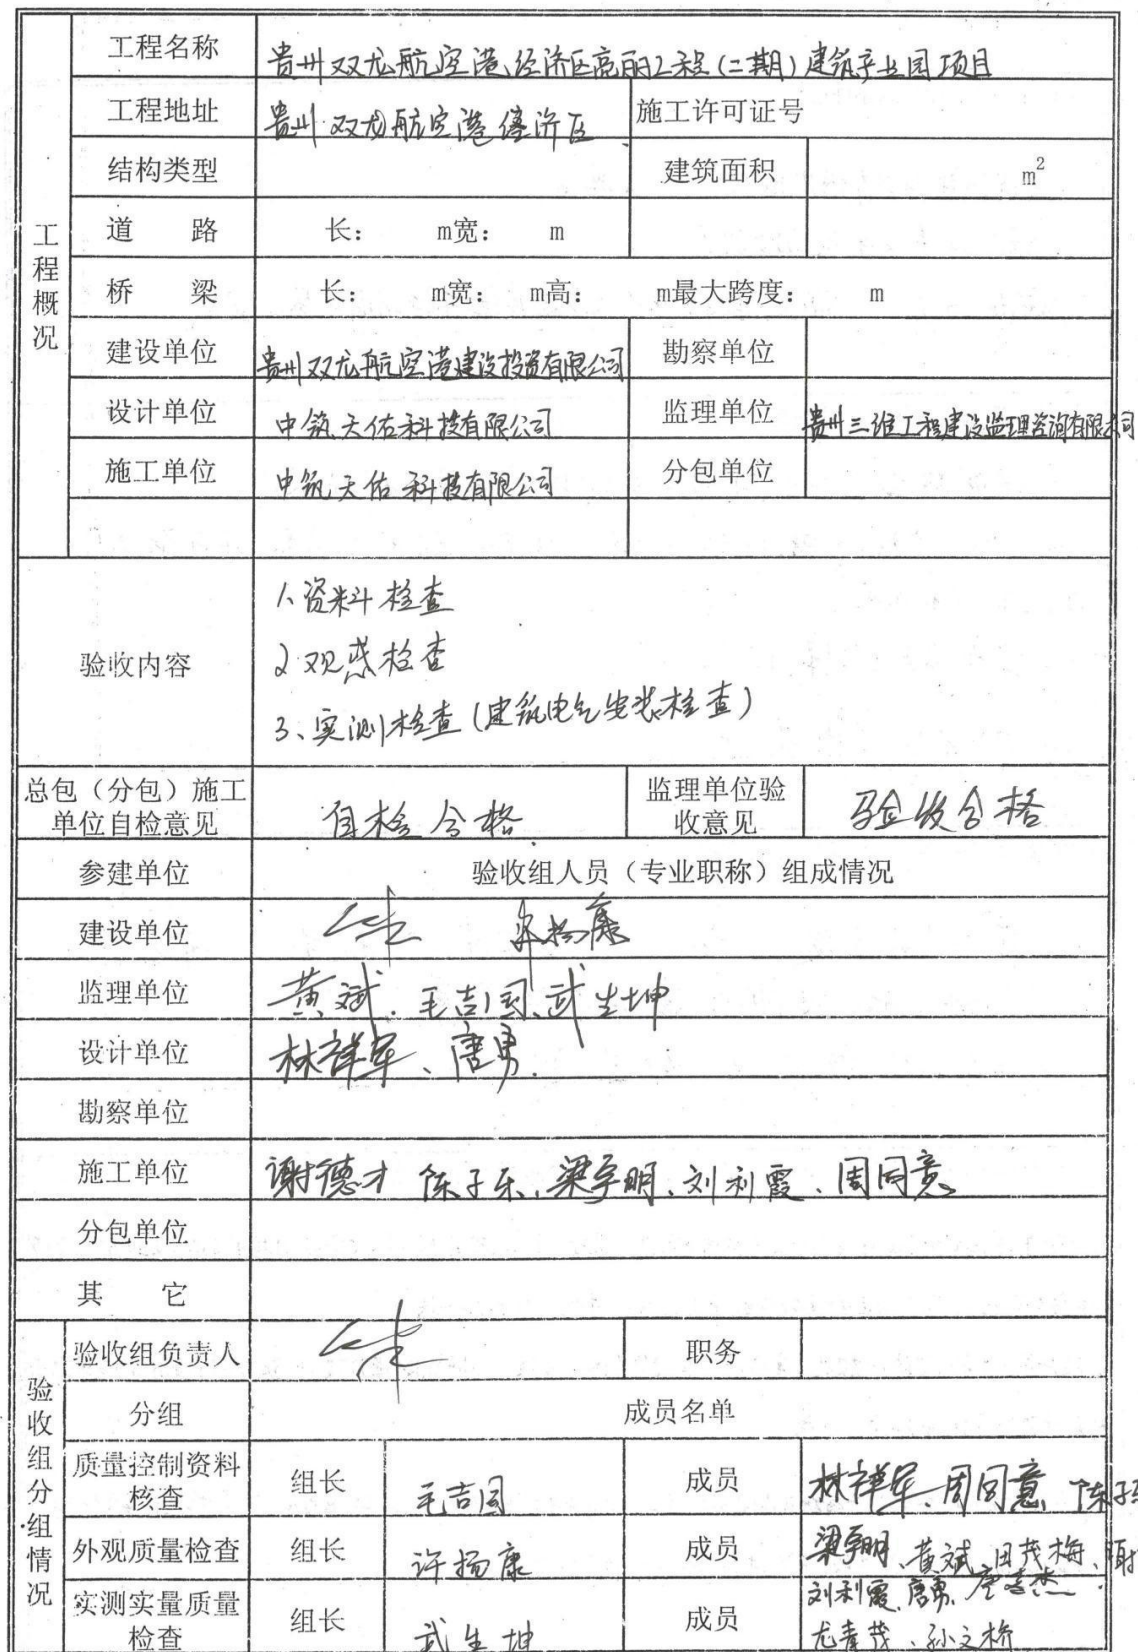 工程名称 贵州双龙航空港经济区亮丽工程(二期)建筑产业园项目
工程地址 贵州双龙航空港经济区 施工许可证号
结构类型 建筑面积 m²
道 路 长: m宽: m
桥 梁 长: m宽: m高: m最大跨度: m
工程概况
建设单位 贵州双龙航空港建设投资有限公司 勘察单位
设计单位 中筑天佑科技有限公司 监理单位 贵州三维工程建设监理咨询有限公司
施工单位 中筑天佑科技有限公司 分包单位
验收内容
1、资料检查
2 观感检查
3、实测检查(建筑电气安装检查)
总包（分包）施工单位自检意见 自检合格 监理单位验收意见 验收合格
参建单位 验收组人员（专业职称）组成情况
建设单位
监理单位 黄斌、毛吉国、武生坤
设计单位 林祥军、唐勇
勘察单位
施工单位 谢德才 陈子乐、梁宇明、刘利霞、周同意
分包单位
其 它
验收组分组情况
验收组负责人 职务
分组 成员名单
质量控制资料核查 组长 毛吉国 成员 林祥军、周同意 陈子
外观质量检查 组长 许扬康 成员 梁宇明、黄斌、田茂梅、谢
实测实量质量检查 组长 武生坤 成员 刘利霞、唐勇、
龙青茂、孙之桥